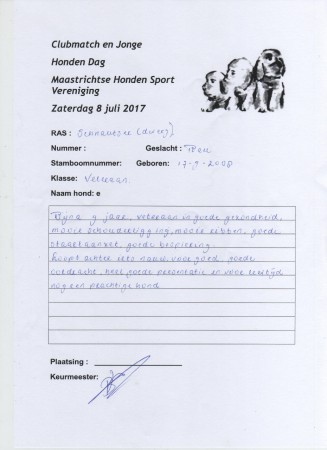 Clubmatch en Jonge
Honden Dag
Maastrichtse Honden Sport
Vereniging
Zaterdag 8 juli 2017
RAS :
Nummer : Geslacht : Reu
Stamboomnummer: Geboren: 17-9-2008
Klasse: Veteraan
Naam hond: e
Byna 9 jaar, veteraan in goede gezondheid,
mooie schouderligging, mooie ribben, goede
staartaanzet, goede bespiering.
loopt achter iets nauw, voor goed, goede
vacht, heel goede presentatie en voor leeftijd
nog een prachtige hond.
Plaatsing :
Keurmeester: